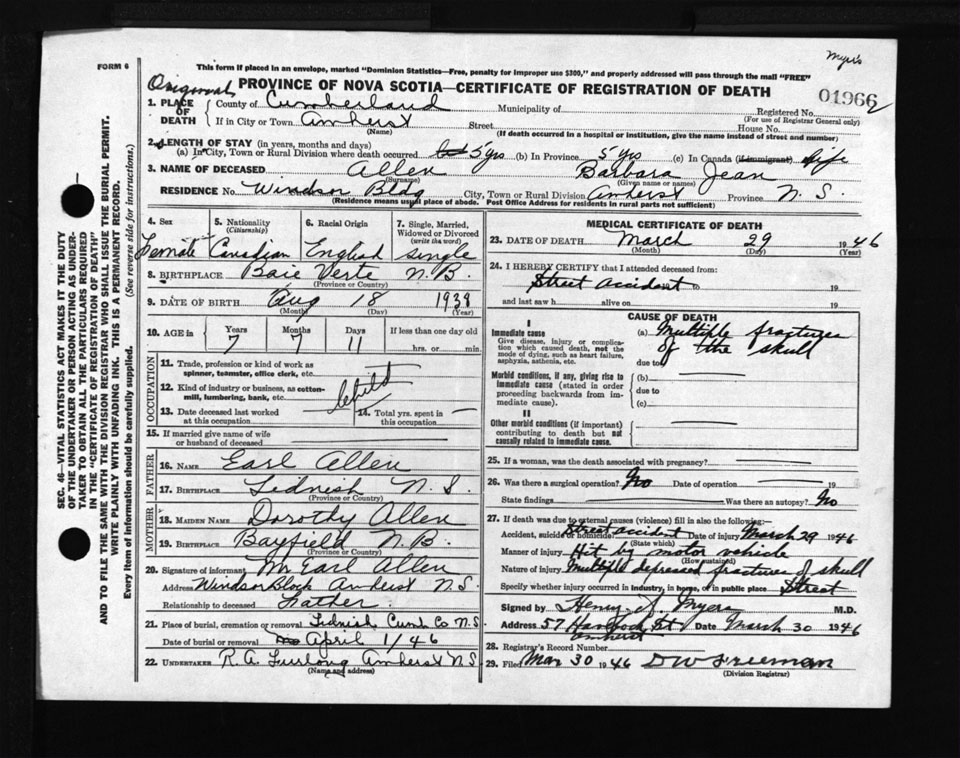 Myers
FORM 6
This form if placed in an envelope, marked "Dominion Statistics—Free, penalty for improper use $300," and properly addressed will pass through the mail "FREE"
Original
PROVINCE OF NOVA SCOTIA—CERTIFICATE OF REGISTRATION OF DEATH
01966
1. PLACE OF DEATH
County of Cumberland Municipality of
Registered No.
(For use of Registrar General only)
If in City or Town Amherst Street House No.
(Name) (If death occurred in a hospital or institution, give the name instead of street and number)
2. LENGTH OF STAY (in years, months and days)
(a) In City, Town or Rural Division where death occurred 5 yrs (b) In Province 5 yrs (c) In Canada (if immigrant) life
3. NAME OF DECEASED Allen Barbara Jean
(Surname) (Given name or names)
RESIDENCE No. Windsor Block City, Town or Rural Division Amherst Province N. S.
(Residence means usual place of abode. Post Office Address for residents in rural parts not sufficient)
4. Sex 5. Nationality 6. Racial Origin 7. Single, Married, Widowed or Divorced
(Citizenship) (write the word)
Female Canadian English single
8. BIRTHPLACE Baie Verte N.B.
(Province or Country)
9. DATE OF BIRTH Aug 18 1938
(Month) (Day) (Year)
10. AGE in Years Months Days If less than one day old
7 7 11 hrs. or min.
OCCUPATION
11. Trade, profession or kind of work as spinner, teamster, office clerk, etc.
12. Kind of industry or business, as cotton-mill, lumbering, bank, etc.
Child
13. Date deceased last worked at this occupation 14. Total yrs. spent in this occupation
15. If married give name of wife or husband of deceased
FATHER
16. NAME Earl Allen
17. BIRTHPLACE Tidnish N. S.
(Province or Country)
MOTHER
18. MAIDEN NAME Dorothy Allen
19. BIRTHPLACE Bayfield N. B.
(Province or Country)
20. Signature of informant M Earl Allen
Address Windsor Block Amherst N. S.
Relationship to deceased Father.
21. Place of burial, cremation or removal Tidnish Cumb Co N. S.
Date of burial or removal April 1/46
22. UNDERTAKER R. A. Furlong Amherst N S
(Name and address)
MEDICAL CERTIFICATE OF DEATH
23. DATE OF DEATH March 29 1946
(Month) (Day) (Year)
24. I HEREBY CERTIFY that I attended deceased from:
Street accident to 19
and last saw h alive on 19
CAUSE OF DEATH
I
Immediate cause
Give disease, injury or complication which caused death, not the mode of dying, such as heart failure, asphyxia, asthenia, etc.
(a) Multiple fractures of the skull
due to
Morbid conditions, if any, giving rise to immediate cause (stated in order proceeding backwards from immediate cause).
(b)
due to
(c)
II
Other morbid conditions (if important) contributing to death but not causally related to immediate cause.
25. If a woman, was the death associated with pregnancy?
26. Was there a surgical operation? No Date of operation 19
State findings Was there an autopsy? No
27. If death was due to external causes (violence) fill in also the following:—
Accident, suicide or homicide? Street accident Date of injury March 29 1946
(State which)
Manner of injury Hit by motor vehicle
(How sustained)
Nature of injury Multiple depressed fractures of skull
Specify whether injury occurred in industry, in home, or in public place Street
Signed by Henry S. Myers M.D.
Address 57 Havelock St Date March 30 1946
Amherst
28. Registrar's Record Number
29. Filed Mar 30 1946 D W Freeman
(Division Registrar)
SEC. 46—VITAL STATISTICS ACT MAKES IT THE DUTY OF THE UNDERTAKER OR PERSON ACTING AS UNDERTAKER TO OBTAIN ALL THE PARTICULARS REQUIRED IN THE "CERTIFICATE OF REGISTRATION OF DEATH" AND TO FILE THE SAME WITH THE DIVISION REGISTRAR WHO SHALL ISSUE THE BURIAL PERMIT.
WRITE PLAINLY WITH UNFADING INK. THIS IS A PERMANENT RECORD.
Every item of information should be carefully supplied. (See reverse side for instructions.)